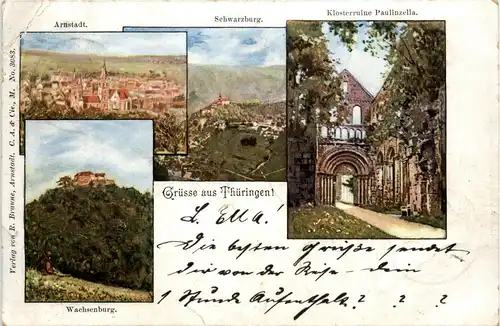 Arnstadt.
Schwarzburg.
Klosterruine Paulinzella.
Verlag von R. Brauns, Arnstadt. C. A. & Cie., M. No. 3083.
Grüsse aus Thüringen!
Wachsenburg.
L. Ella!
Die besten Grüße sendet
der von der Reise – dein
1 Stunde Aufenthalt ? ? ?